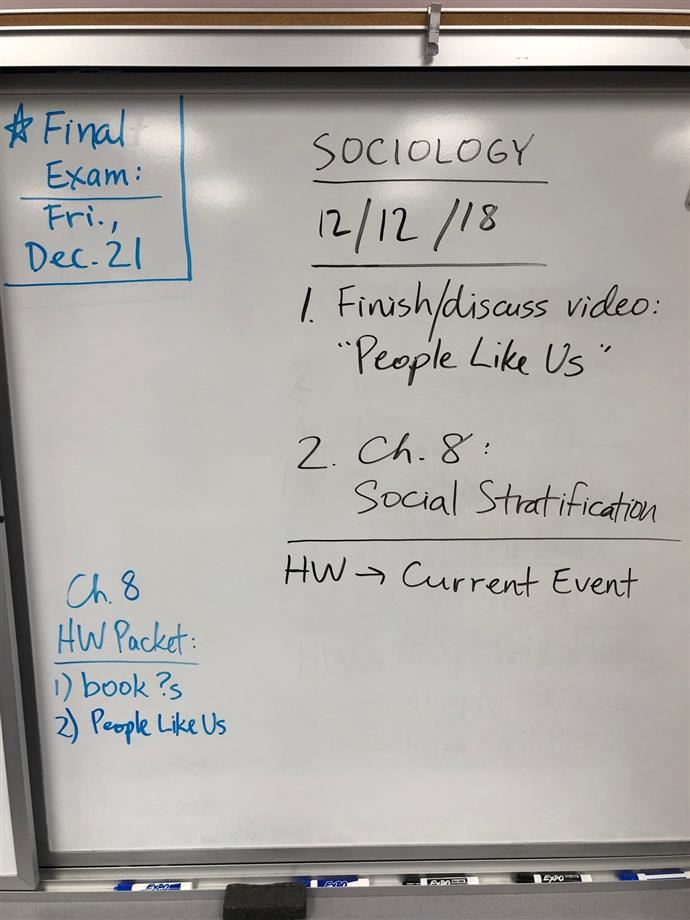 ☆ Final
Exam:
Fri.,
Dec. 21
SOCIOLOGY
12/12/18
1. Finish/discuss video:
"People Like Us"
2. Ch. 8:
Social Stratification
HW → Current Event
Ch. 8
HW Packet:
1) book ?s
2) People Like Us
EXPO
EXPO
EXPO
EXPO
EXPO